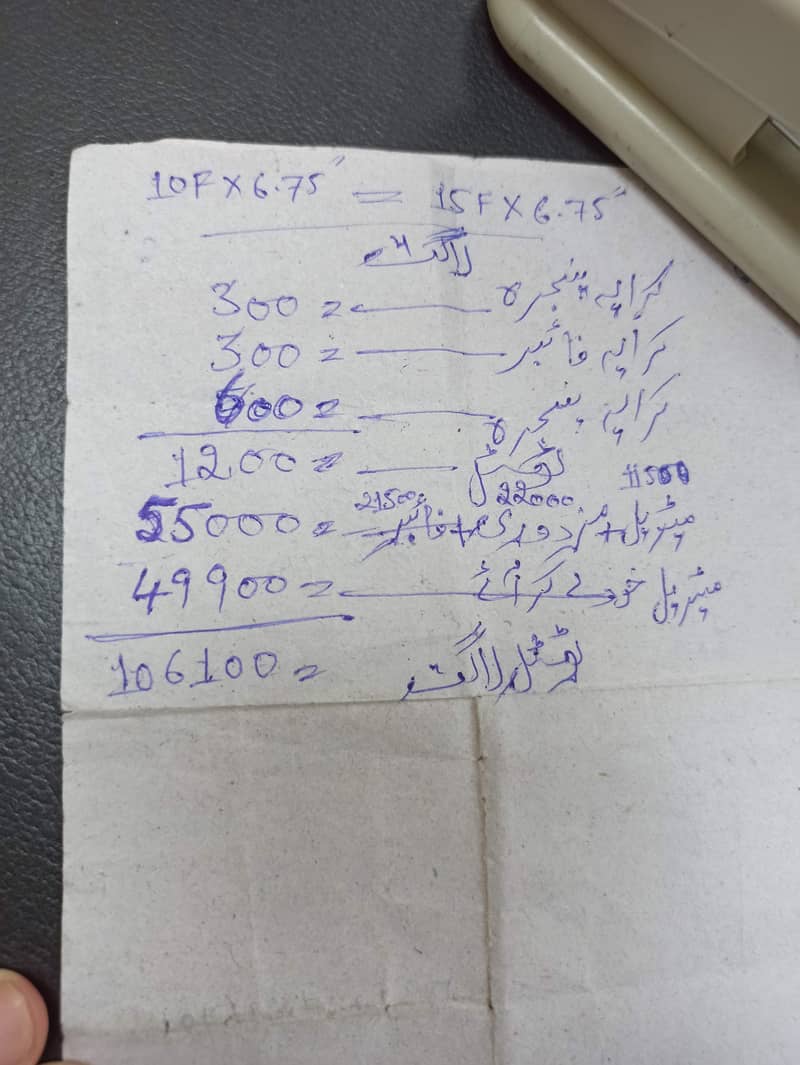 10F X 6.75" = 15F X 6.75"
لاگت
کرایہ پنجرہ — 300=
کرایہ فائبر — 300=
کرایہ پنجرہ — 600=
ٹوٹل — 1200=
11500 22000 21500
میٹریل + مزدوری + فائبر — 55000=
میٹریل خود لے کر آئے — 49900=
ٹوٹل لاگت 106100=